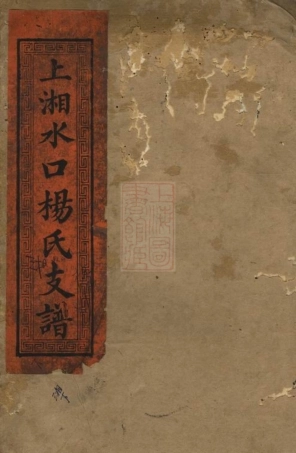 上湘水口楊氏支譜